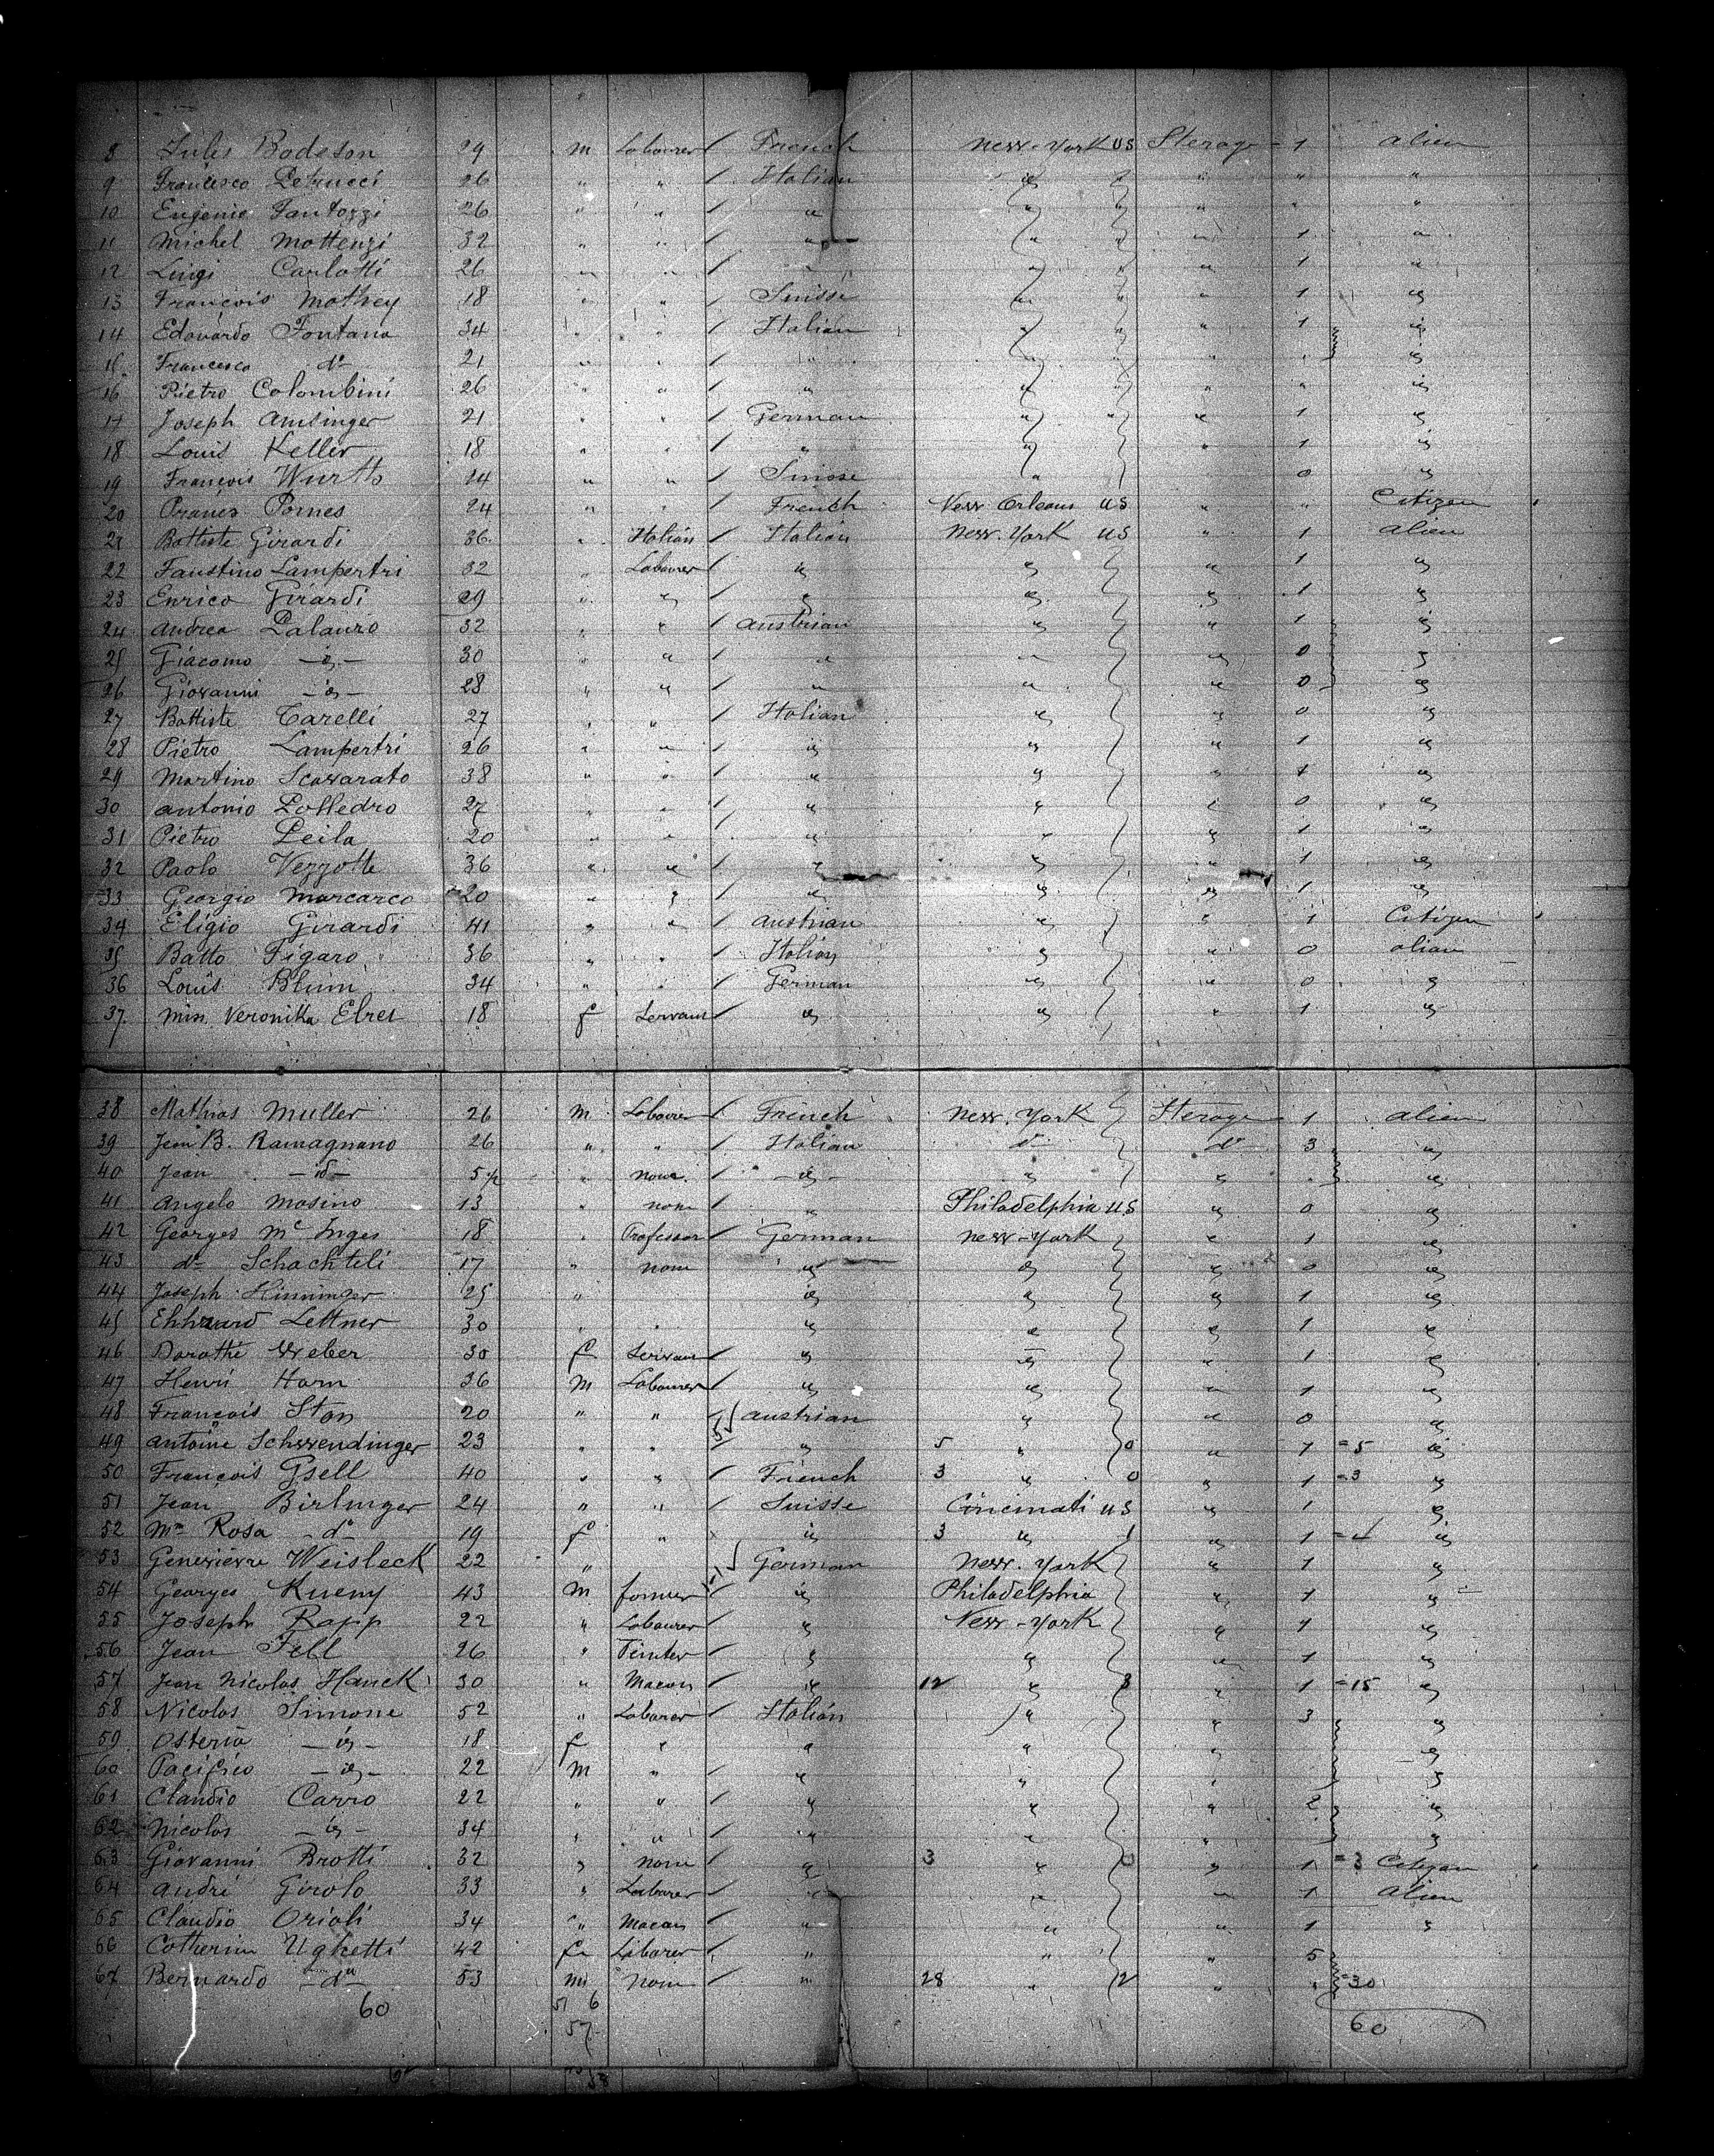 8 Jules Bodeson 29 m Labourer French New-York US Sterage 1 alien
9 Francesco Petrucci 26 " " Italian " " " "
10 Eugenio Fantozzi 26 " " " " " " "
11 Michel Mottenzi 32 " " " " " 1 "
12 Luigi Carlotti 26 " " " " " 1 "
13 François Mathey 18 " " Suisse " " 1 "
14 Edouardo Fontana 34 " " Italian " " 1 "
15 Francesco do 21 " " " " " " "
16 Pietro Colombini 26 " " " " " " "
17 Joseph Amsinger 21 " " German " " 1 "
18 Louis Keller 18 " " " " " 1 "
19 François Wurth 14 " " Suisse " 0 "
20 Pomes 24 " " French New Orleans US " " Citizen
21 Battiste Girardi 36 " Italian Italian New-York US " 1 alien
22 Faustino Lampertri 32 " Labourer " " " 1 "
23 Enrico Girardi 29 " " " " " 1 "
24 Andrea Palauro 32 " " Austrian " " 1 "
25 Giacomo - " - 30 " " " " " 0 "
26 Giovanni - " - 28 " " " " " 0 "
27 Battiste Carelli 27 " " Italian " " 0 "
28 Pietro Lampertri 26 " " " " " 1 "
29 Martino Scavarato 38 " " " " " 1 "
30 Antonio Polledro 27 " " " " " 0 "
31 Pietro Peila 20 " " " " " 1 "
32 Paolo Vezzotte 36 " " " " " 1 "
33 Georgio Marcarco 20 " " " " " 1 "
34 Eligio Girardi 41 " " Austrian " " 1 Citizen
35 Batto Figaro 36 " " Italian " " 0 alien
36 Louis Blum 34 " " German " " 0 "
37 Miss Veronika 18 f Servant " " " 1 "
38 Mathias Muller 26 m Labourer French New-York Sterage 1 alien
39 Jean B. Ramagnano 26 " " Italian do do 3 "
40 Jean - d - 5 " none " " " " "
41 Angelo Masino 13 " none " Philadelphia US " 0 "
42 Georges Mc Inges 18 " Professor German New-York " 1 "
43 do Schachteli 17 " none " " " 0 "
44 Joseph Himminger 25 " " " " 1 "
45 Ehhrard Lettner 30 " " " " " 1 "
46 Dorothé Weber 30 f Servant " " " 1 "
47 Henri Horn 36 m Labourer " " " 1 "
48 François Ston 20 " " Austrian " " 0 "
49 Antoine Schwendinger 23 " " " 5 " 0 " 1 =5 "
50 François Gsell 40 " " French 3 " 0 " 1 =3 "
51 Jean Birlinger 24 " " Suisse Cincinnati US " 1 "
52 Mme Rosa do 19 f " " 3 " 1 " 1 =4 "
53 Genevièvre Weisleck 22 " " German New-York " 1 "
54 Georges Kueny 43 m farmer " Philadelphia " 1 "
55 Joseph Rapp 22 " Labourer " New-York " 1 "
56 Jean Fell 26 " " " " 1 "
57 Jean Nicolas Hanck 30 " Macon " 12 " 3 " 1 =15 "
58 Nicolas Simone 52 " Labourer Italian " " 3 "
59 Osteria - " - 18 f " " " " "
60 Pacifico - " - 22 m " " " " "
61 Claudio Carro 22 " " " " " 2 "
62 Nicolas - " - 34 " " " " " "
63 Giovanni Brotti 32 " none " 3 " 0 " 1 =3 Citizen
64 André Girolo 33 " Labourer " " " 1 alien
65 Claudio Orioli 34 " Macon " " " 1 "
66 Catherine Ughetti 42 f Labourer " " " 5
67 Bernardo - do - 53 m none " 28 " 2 " " =30
60 51 6 60
57